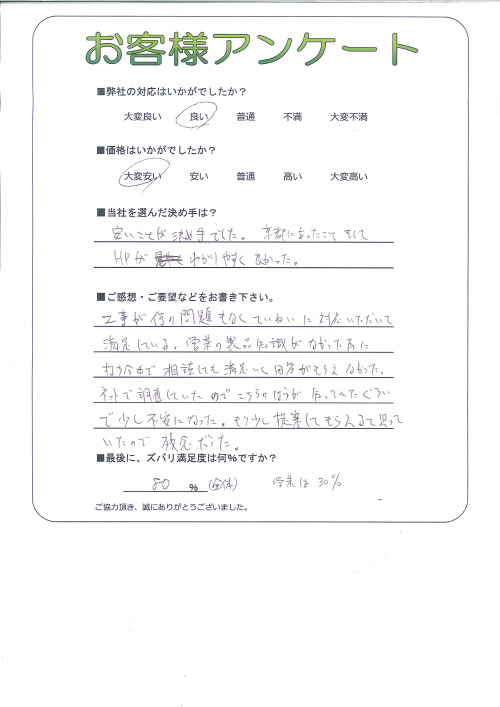 お客様アンケート
■弊社の対応はいかがでしたか？
大変良い　良い　普通　不満　大変不満
■価格はいかがでしたか？
大変安い　安い　普通　高い　大変高い
■当社を選んだ決め手は？
安いことが決め手でした。京都にあったこと そして
HPが わかりやすく 良かった。
■ご感想・ご要望などをお書き下さい。
工事が何の問題もなくていねいに対応いただいて
満足している。営業の製品知識がなかった為に
打ち合せで相談しても満足いく回答がもらえなかった。
ネットで調査していたのでこちらのほうが知っていたぐらい
で少し不安になった。もう少し提案してもらえると思って
いたので残念だった。
■最後に、ズバリ満足度は何%ですか？
80 % (全体)　営業は30%
ご協力頂き、誠にありがとうございました。